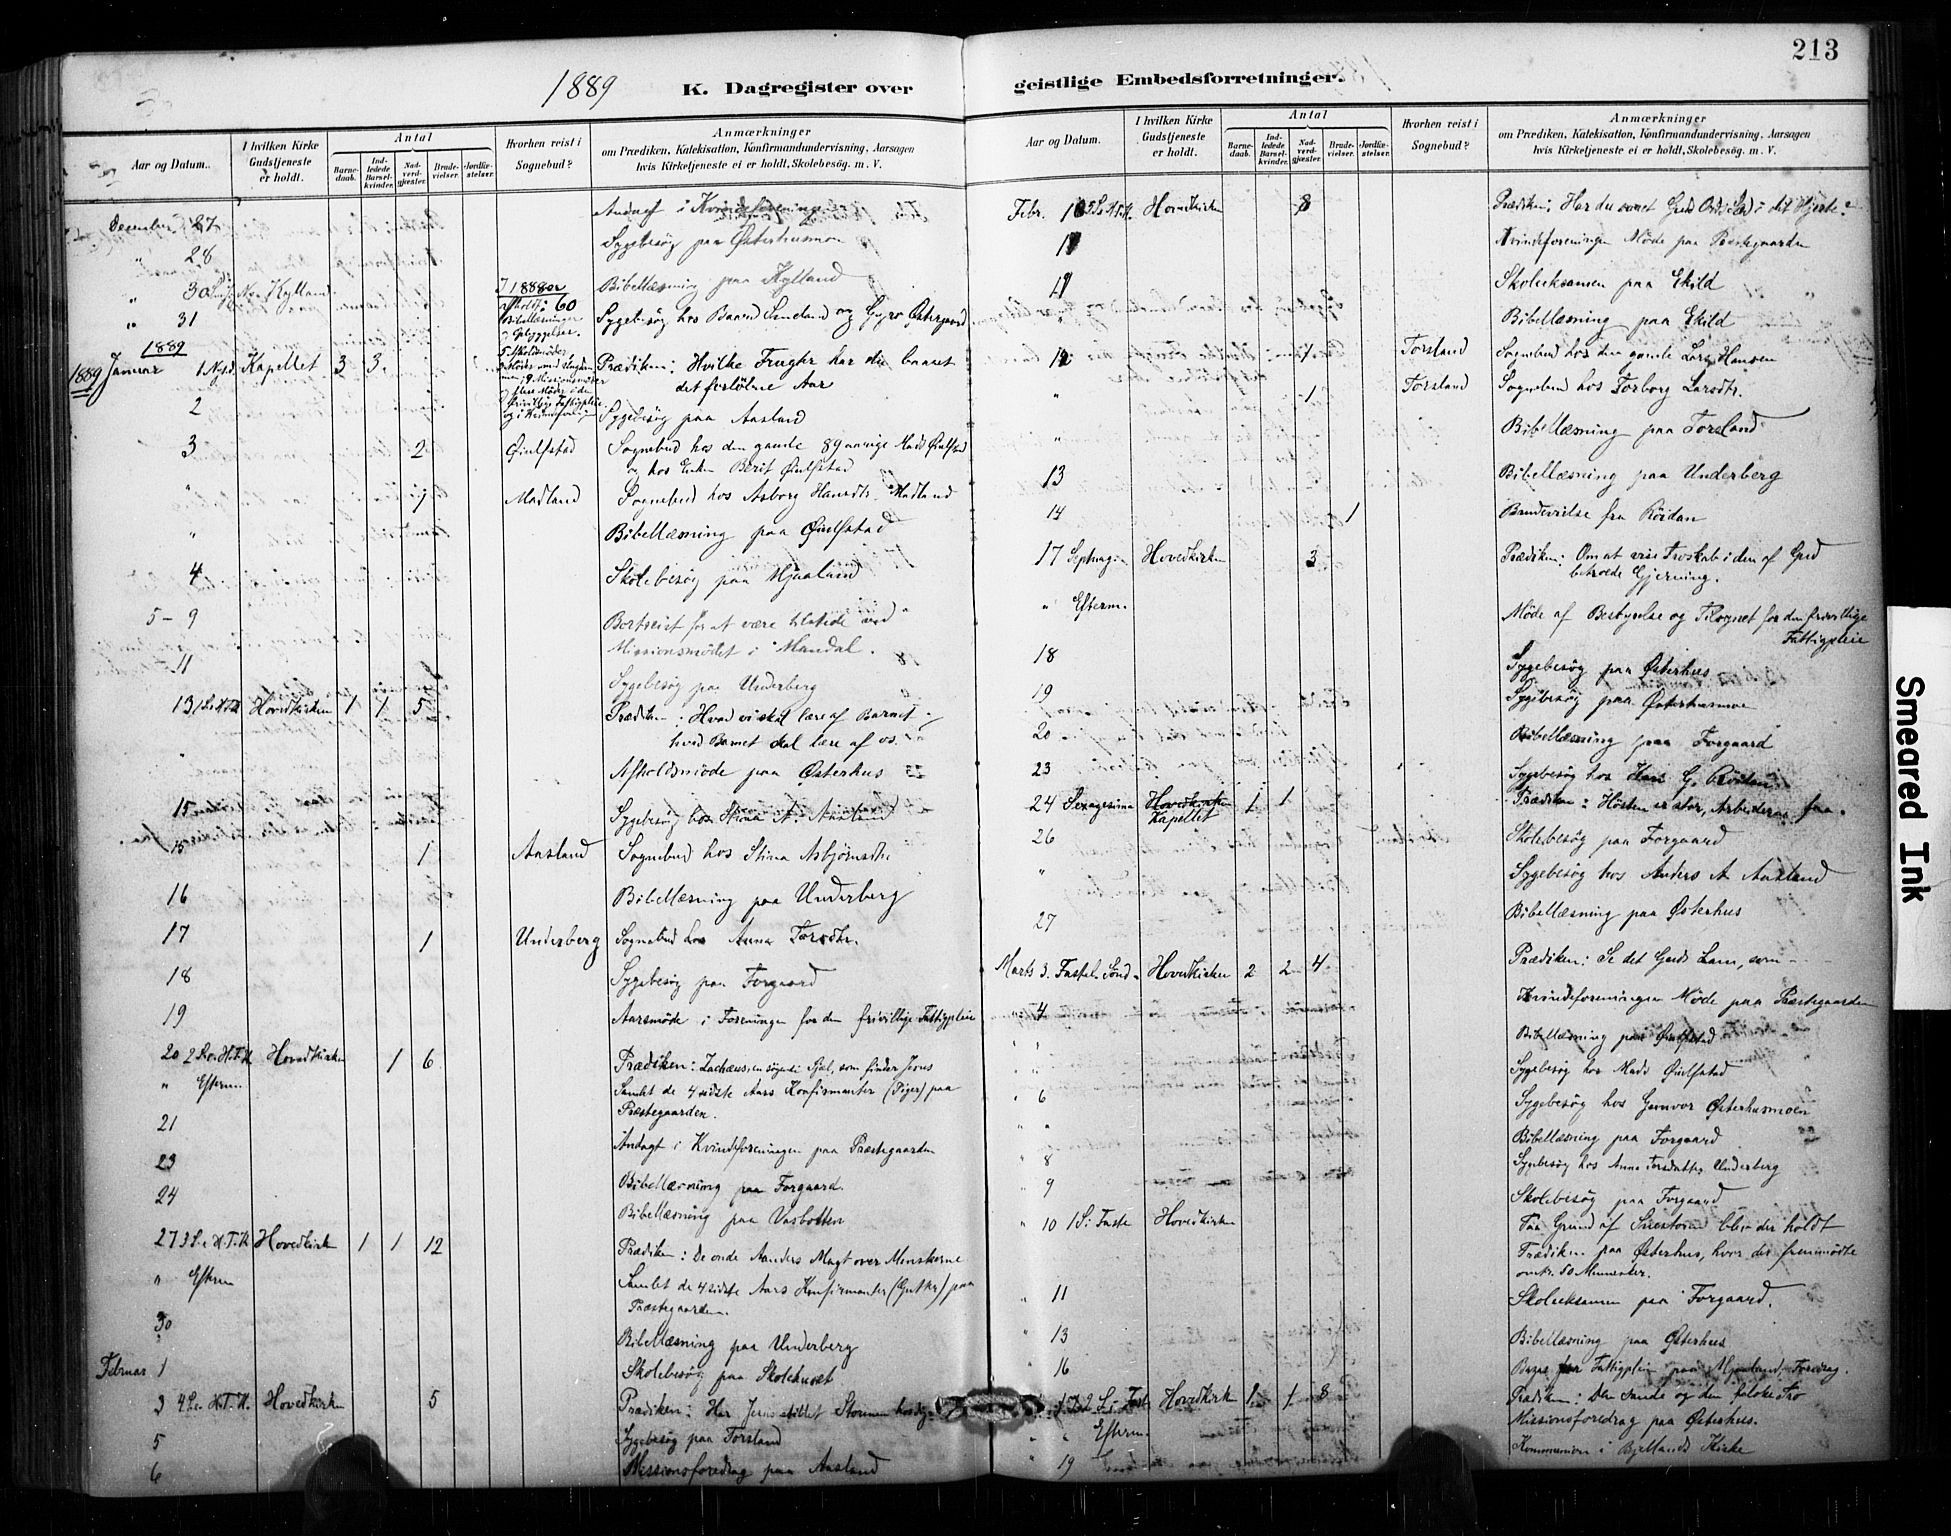 213
1889 K. Dagregister over geistlige Embedsforretninger.
Aar og Datum.
I hvilken Kirke Gudstjeneste er holdt.
Antal
Barnedaab.
Indledede Barselkvinder.
Nadverdgjæster.
Brudevielser.
Jordfæstelser.
Hvorhen reist i Sognebud?
Anmærkninger
om Prædiken, Katekisation, Konfirmandundervisning, Aarsagen
hvis Kirketjeneste ei er holdt, Skolebesøg. m. V.
December 27 i Kvindeforeningen
" 28 Sygebesøg paa Østerhusmoen
" 30 Kylland Bibellæsning paa Kylland
" 31 Sygebesøg hos og Østergaard
1889
1889 Januar 1 Nyt. Kapellet 3 3 Prædiken: Hvilke Frugter har du baaret
det forløbne Aar
2 Sygebesøg paa Aasland
3 2 Øiulfstad Sognebud hos den gamle 89 aarige Mads Øiulfstad
og hos Enken Berit Øiulfstad
" 1 Madland Sognebud hos Asborg Hansdtr. Madland
" Bibellæsning paa Øiulfstad
4 Skolebesøg paa Mjaaland
5 - 9 Bortreist for at være tilstede ved
Missionsmødet i Mandal.
11 Sygebesøg paa Underberg
13 1 S. e. H.T.K. Hovedkirken 1 1 5 Prædiken: Hvad vi skal lære af Barnet -
hvad Barnet skal lære af os.
" Afholdsmøde paa Østerhus
15 Sygebesøg hos Stina A. Aasland
15 1 Aasland Sognebud hos Stina Asbjørnsdtr
16 Bibellæsning paa Underberg
17 1 Underberg Sognebud hos Anna Torsdtr.
18 Sygebesøg paa Forgaard
19 Aarsmøde i Foreningen for den frivillige Fattigpleie
20 2 S. e. H.T.K Hovedkirken 1 6 Prædiken: Zachæus, en søgende Sjæl, som finder Jesus
" Efterm. Samlet de 4 sidste Aars Konfirmanter (Piger) paa
Præstegaarden.
21 Andagt i Kvindeforeningen paa Præstegaarden
23 Bibellæsning paa Forgaard.
24 Bibellæsning paa Vasbotten
27 3 S. e. H.T.K Hovedkirk 1 1 12 Prædiken: De onde Aanders Magt over Menskerne
" Efterm Samlet de 4 sidste Aars Konfirmanter (Gutter) paa
Præstegaarden.
30 Bibellæsning paa Underberg
Februar 1 Skolebesøg paa Skolehuset
3 4 S. e. H.T.K. Hovedkirken 5 Prædiken: Har Jesus stillet Stormen
5 Sygebesøg paa Torsland
6 Missionsforedrag paa Aasland
Aar og Datum.
I hvilken Kirke Gudstjeneste er holdt.
Antal
Barnedaab.
Indledede Barselkvinder.
Nadverdgjæster.
Brudevielser.
Jordfæstelser.
Hvorhen reist i Sognebud?
Anmærkninger
om Prædiken, Katekisation, Konfirmandundervisning, Aarsagen
hvis Kirketjeneste ei er holdt, Skolebesøg. m. V.
Febr. 10 5 S. e. H.T.K. Hovedkirken 8 Prædiken: Har du Guds Ord i dit Hjerte?
11 Kvindeforeningen Møde paa Præstegaarden
11 Skoleeksamen paa Ekild
" Bibellæsning paa Ekild
12 1 Torsland Sognebud hos den gamle Lars Hansen
" 1 Torsland Sognebud hos Torborg Larsdtr.
" Bibellæsning paa Torsland
13 Bibellæsning paa Underberg
14 1 Brudevielse fra Röidan
17 Septuag. Hovedkirken 3 Prædiken: Om at vise Troskab i den af Gud
betroede Gjerning.
" Efterm. Møde af Bestyrelse og Tilsynet for den frivillige
Fattigpleie
18 Sygebesøg paa Østerhus
19 Sygebesøg paa Østerhusmoen
20 Bibellæsning paa Forgaard
23 Sygebesøg hos Hans G. Röidan
24 Sexagesima Hovedkirken Kapellet 1 1 Prædiken: Høsten er stor, Arbeiderne faa.
26 Skolebesøg paa Forgaard
" Sygebesøg hos Anders A Aasland
27 Bibellæsning paa Østerhus
Marts 3. Fastel. Sønd. Hovedkirken 2 2 4 Prædiken: Se det Guds Lam, som - -
" 4 Kvindeforeningen Møde paa Præstegaarden
" Bibellæsning paa Øiulfstad
" Sygebesøg hos Mads Øiulfstad
" 6 Sygebesøg hos Gunvor Østerhusmoen
" " Bibellæsning paa Forgaard
" 8 Sygebesøg hos Anna Torsdatter Underberg
" 9 Skolebesøg paa Forgaard
" 10 1 S. i Faste Hovedkirken Paa Grund af Snestorm blev der holdt
Prædiken paa Østerhus, hvor der fremmødte
omtr. 50 Mennesker.
" 11 Skoleeksamen paa Forgaard.
" 13 Bibellæsning paa Østerhus
" 16 Fattigpleien paa Mjaaland, Foredrag.
" 17 2 S. i Fast. Hovedkirk 1 1 8 Prædiken: Den sande og den falske Tro
" " Efterm. Missionsforedrag paa Østerhus.
" 19 Kommunion i Bjellands Kirke
Smeared Ink